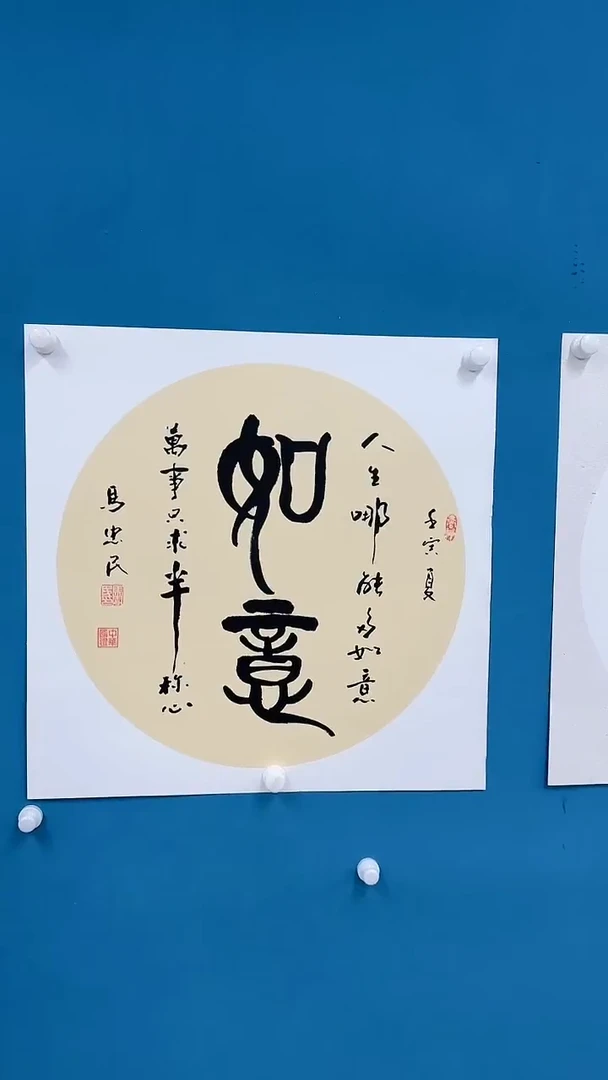 壬寅夏
人生哪能多如意
如意
萬事只求半称心
馬忠民